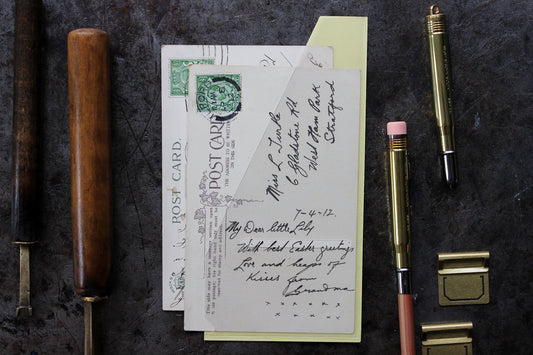 POST CARD
THE ADDRESS TO BE WRITTEN
ON THIS SIDE
Miss L Turtle
6 Gladstone Rd
West Ham Park
Stratford
7-4-12.
My Dear little Lily
With best Easter greetings
Love and heaps of
Kisses from
Grandma
x x x x x
x x x x x
POST CARD